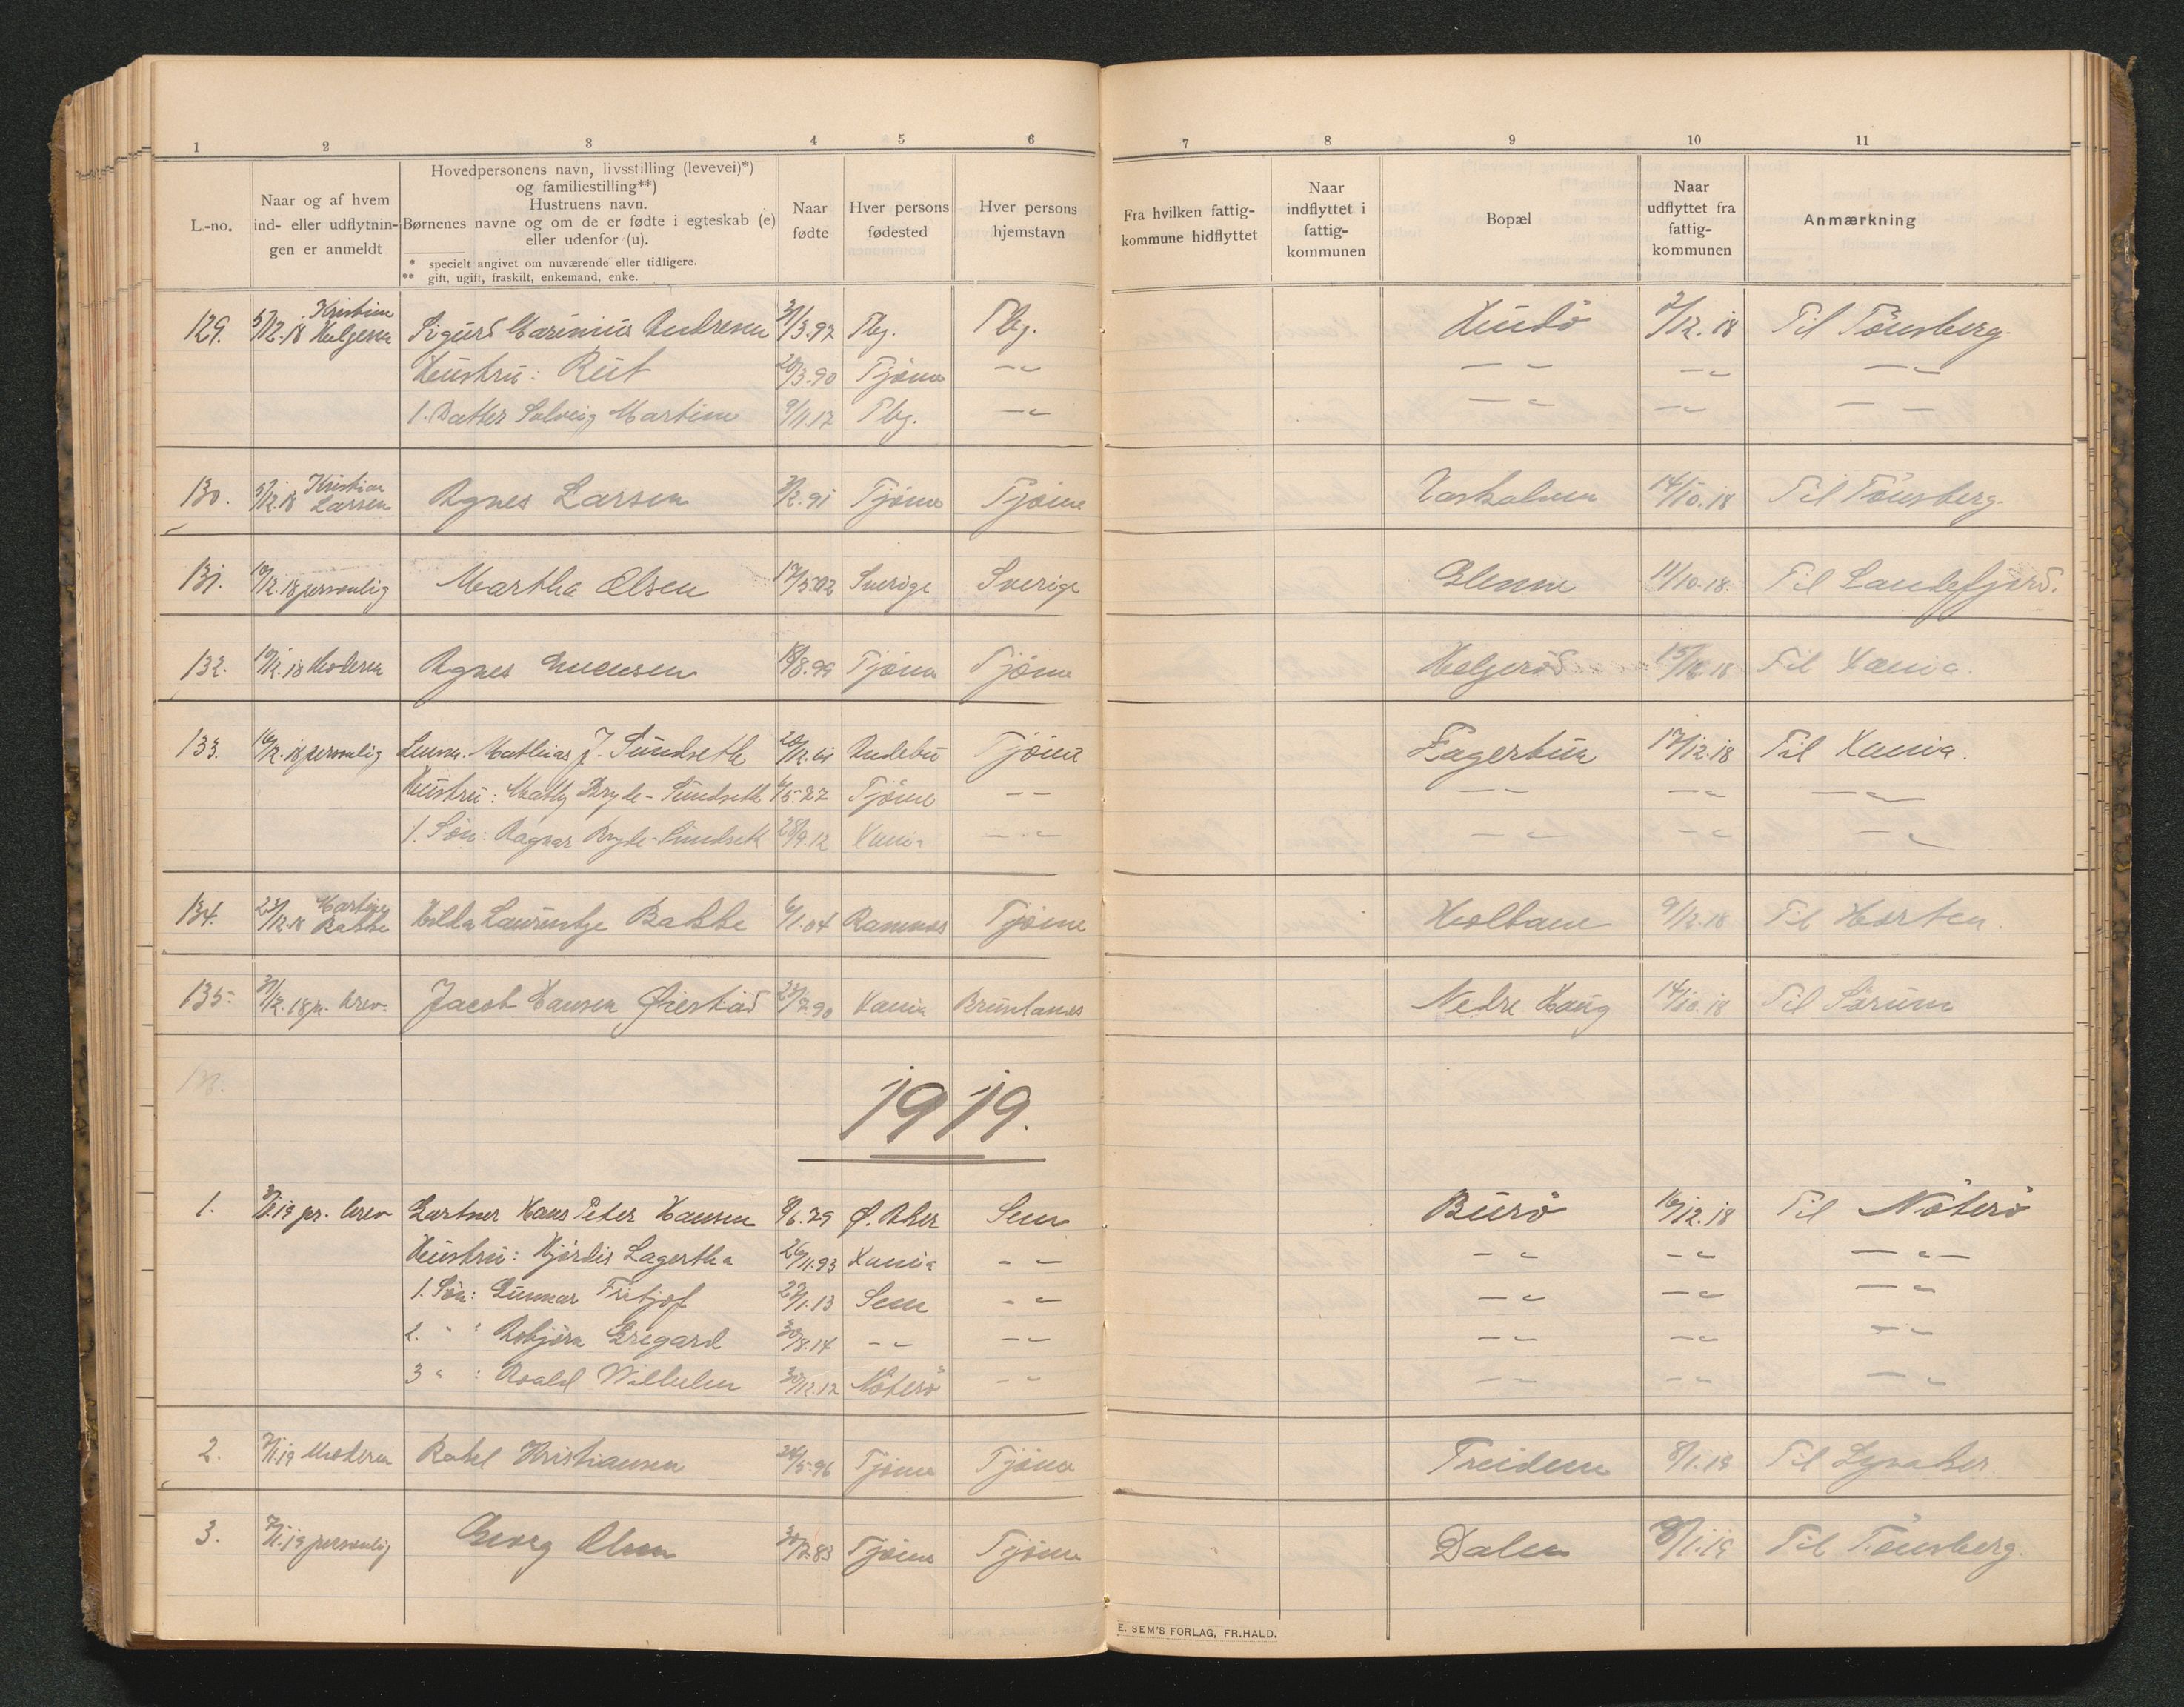 1 2 3 4 5 6 7 8 9 10 11
L.-no.
Naar og af hvem
ind- eller udflytnin-
gen er anmeldt
Hovedpersonens navn, livsstilling (levevei)*)
og familiestilling**)
Hustruens navn.
Børnenes navne og om de er fødte i egteskab (e)
eller udenfor (u).
* specielt angivet om nuværende eller tidligere.
** gift, ugift, fraskilt, enkemand, enke.
Naar
fødte
Hver persons
fødested
Hver persons
hjemstavn
Fra hvilken fattig-
kommune hidflyttet
Naar
indflyttet i
fattig-
kommunen
Bopæl
Naar
udflyttet fra
fattig-
kommunen
Anmærkning
129. 5/12.18 Kristian Helgesen Sigurd Marinius Andresen Tbg. Tbg. Hudö 2/12.18 Til Tönsberg.
Hustru: Rut 20/3.90 Tjöme -"- -"- -"- -"-
1. Datter Solveig Martine 9/11.17 Tbg. -"- -"- -"- - -
130. 5/12.18 Kristian Larsen Agnes Larsen Tjöme Tjöme 14/10.18 Til Tönsberg.
131. 10/12.18 personlig Martha Olsen 17/5.02 Sverige Sverige Glenne 14/10.18. Til Sandefjord.
132. 10/12.18 Moderen Agnes 18/8.99 Tjöme Tjöme Helgeröd 15/12.18 Til Xania.
133. 16/12.18 personlig Mathias J. Sundseth 20/12.61 Andebu Tjöme Fagertun 17/12.18 Til Xania.
Hustru: Bryde-Sundseth Tjöme - - - - -"- -"-
1. Sön: Ragnar Bryde-Sundseth 28/9.12 Xania -"- -"- -"- -"-
134. 23/12.18 Martine Bakke Hilda Laurentze Bakke 6/1.04 Ramnes Tjöme Holtane 9/12.18 Til Horten.
135. 31/12.18 pr. brev. Jacob Hansen Xania Brunlanes Nedre Haug 14/10.18 Til Sörum
1919.
1. pr. brev Gartner Hans Peter Hansen 8/6.79 Ø. Aker Sem Burö 16/12.18 Til Nöterö
Hustru: Hjördis Lagertha 26/11.93 Xania - - -"- -"- -"-
1. Sön: Gunnar Fritjof 27/1.13 Sem -"- -"- -"- -"-
2. " : Asbjörn Gregard 30/8.14 -"- -"- -"- -"- -"-
3 " : Roald Wilhelm 30/12.17 Nöterö -"- -"- -"- -"-
2. 7/1.19 Moderen Rakel Kristiansen 24/5.96 Tjöme Tjöme Treidene 8/1.19 Til Lysaker
3. 7/1.19 personlig Georg Olsen Tjöme Tjöme Dalen 8/1.19 Til Tönsberg.
E. SEM'S FORLAG, FR.HALD.